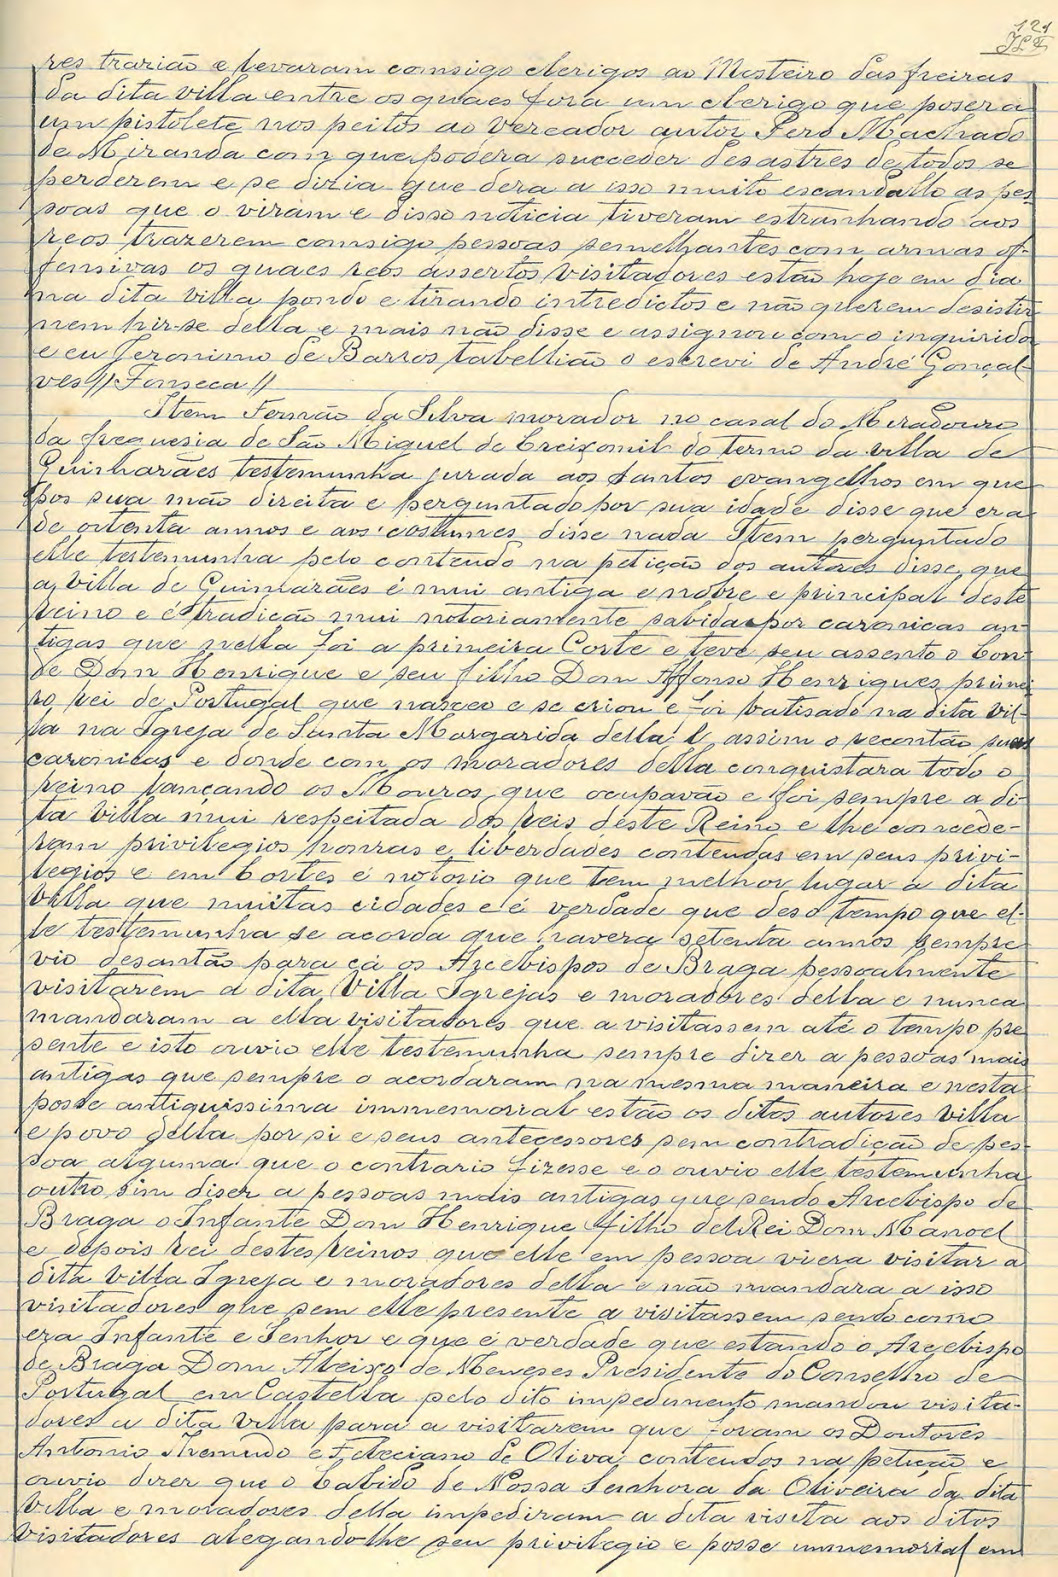 121
res trarião e levaram comsigo clerigos ao Mosteiro das freiras
da dita villa entre os quaes fora um clerigo que posera
um pistolete nos peitos ao vereador autor Pero Machado
de Miranda com que podera succeder desastres de todos se
perderem e se dizia que dera a isso muito escandallo as pes
soas que o viram e disso noticia tiveram estranhando aos
reos trazerem comsigo pessoas semelhantes com armas of-
fensivas os quaes reos assertos visitadores estão hoje em dia
na dita villa pondo e tirando intredictos e não querem desistir
nem hir-se della e mais não disse e assignou com o inquiridor
e eu Jeronimo de Barros tabellião o escrevi de André Gonçal-
ves // Fonseca //
Item Fernão da Silva morador no casal do Miradouro
da freguesia de São Miguel de Creixomil do termo da villa de
Guimarães testemunha jurada aos Santos evangelhos em que
pos sua mão direita e perguntado por sua idade disse que era
de oitenta annos e aos costumes disse nada Item perguntado
elle testemunha pelo contendo na petição dos autores disse que
a villa de Guimarães é mui antiga e nobre e principal deste
reino e é tradição mui notoriamente sabida por caronicas an-
tigas que nella foi a primeira Corte e teve seu assento o Con-
de Dom Henrique e seu filho Dom Affonso Henriques primei
ro rei de Portugal que nasceo e se criou e foi batisado na dita vil-
la na Igreja de Santa Margarida della e assim o recontão suas
caronicas e donde com os moradores della conquistara todo o
reino lançando os Mouros que ocupavão e foi sempre a di-
ta villa mui respeitada dos Reis deste Reino e lhe concede-
ram privilegios honras e liberdades contendas em seus privi-
legios e em Cortes é notorio que tem melhor lugar a dita
villa que muitas cidades e é verdade que deso tempo que el-
le testemunha se acorda que havera setenta annos sempre
vio desantão para cá os Arcebispos de Braga pessoalmente
visitarem a dita Villa Igrejas e moradores della e nunca
mandaram a ella visitadores que a visitassem até o tempo pre
sente e isto ouvio elle testemunha sempre dizer a pessoas mais
antigas que sempre o acordaram na mesma maneira e nesta
posse antiquissima immemorial estão os ditos autores villa
e povo della por si e seus antecessores sem contradição de pes-
soa alguma que o contrario fizesse e o ouvio elle testemunha
outro sim diser a pessoas mais antigas que sendo Arcebispo de
Braga o Infante Dom Henrique filho del Rei Dom Manoel
e depois rei destes reinos que elle em pessoa viera visitar a
dita Villa Igreja e moradores della e não mandara a isso
visitadores que sem elle presente a visitassem sendo como
era Infante e Senhor e que é verdade que estando o Arcebispo
de Braga Dom Aleixo de Meneses Presidente do Conselho de
Portugal em Castella pelo dito impedimento mandou visita-
dores a dita Villa para a visitarem que foram os Doutores
Antonio e Feleciano de Oliva contendos na petição e
ouvio dizer que o Cabido de Nossa Senhora da Oliveira da dita
villa e moradores della impediram a dita visita aos ditos
visitadores alegando-lhe seu privilegio e posse immemorial em